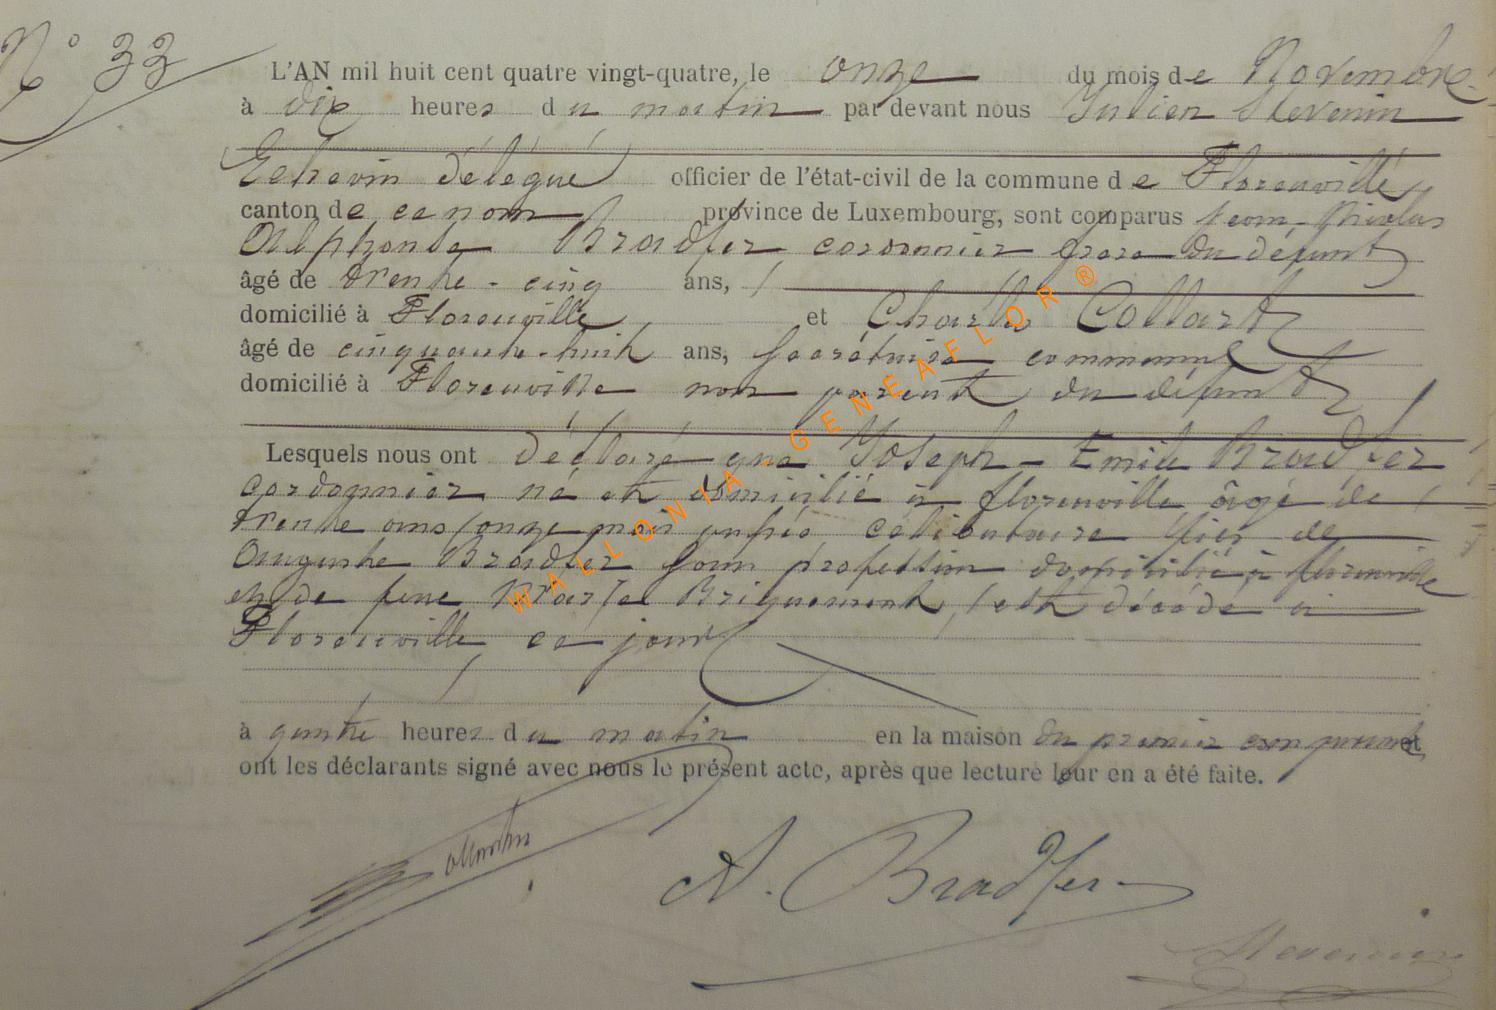 N° 33
L'AN mil huit cent quatre vingt-quatre, le onze du mois de Novembre
à dix heures du matin par devant nous Julien Stevenin
Echevin délégué officier de l'état-civil de la commune de Florenville
canton de ce nom province de Luxembourg, sont comparus Jean-Nicolas
Alphonse Bradfer cordonnier frère du défunt
âgé de trente-cinq ans,
domicilié à Florenville et Charles Collart
âgé de cinquante-huit ans, Secrétaire communal
domicilié à Florenville non parent du défunt
Lesquels nous ont déclaré que Joseph-Emile Bradfer
cordonnier né et domicilié à florenville âgé de
trente ans onze mois célibataire fils de
Auguste Bradfer sans profession domicilié à florenville
et de feue Briquemont, est décédé à
Florenville ce jour
à quatre heures du matin en la maison du premier comparant et
ont les déclarants signé avec nous le présent acte, après que lecture leur en a été faite.
A. Bradfer
Stevenin
WALLONIA GENEAFLOR ®